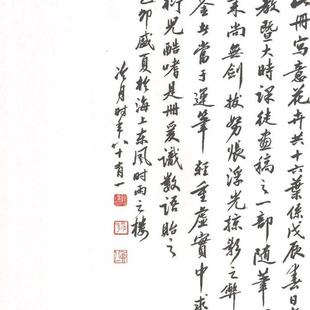 此册写意花卉共十六叶系戊辰春日
教暨大时课徒画稿之一部随笔
朱尚无剑拔弩张浮光掠影之弊
鉴出当于运笔轻重虚实中求
衍儿酷嗜是册爰识数语贻之
己卯盛夏于海上东风时雨之楼
冷月时年八十有一